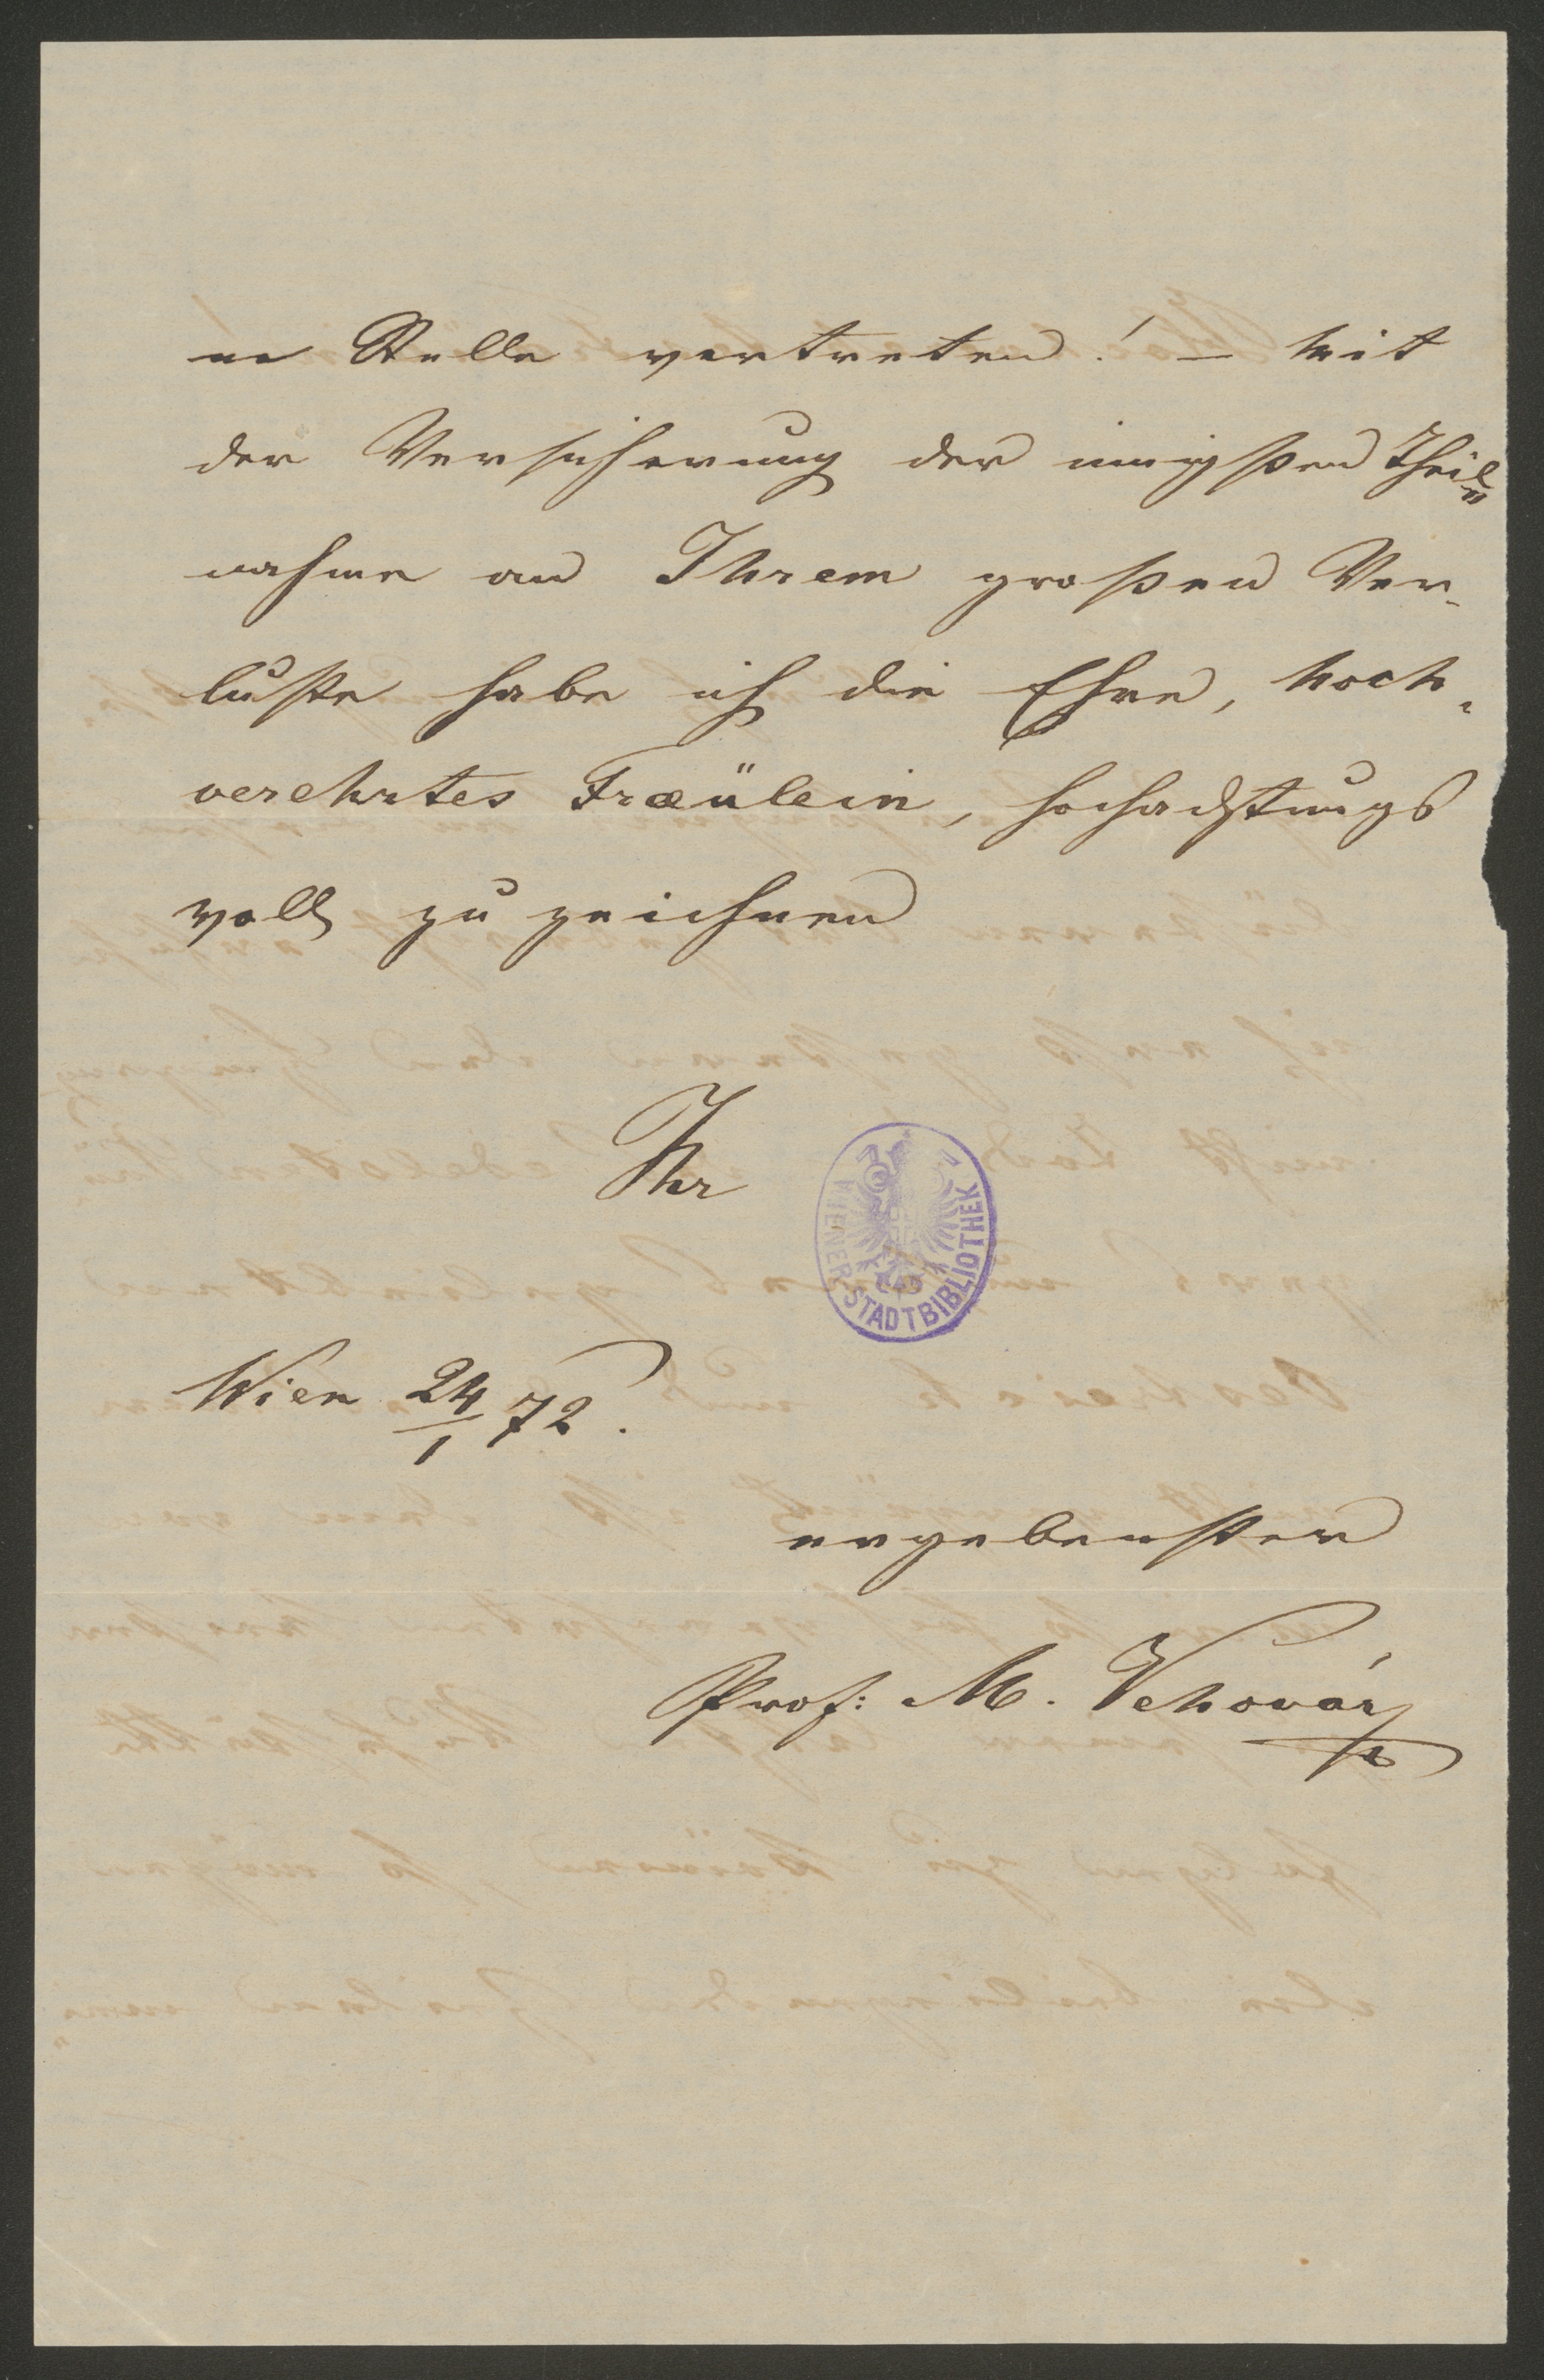 ne Stelle vertreten! — Mit
der Versicherung der innigsten Theil„
nahme an Ihrem großen Ver-
luste habe ich die Ehre, hoch-
verehrtes Fraeülein, hochachtungs
voll zu zeichnen
Ihr
WIENER STADTBIBLIOTHEK
Wien 24/1 72.
ergebenster
Prof: M. Vehovár